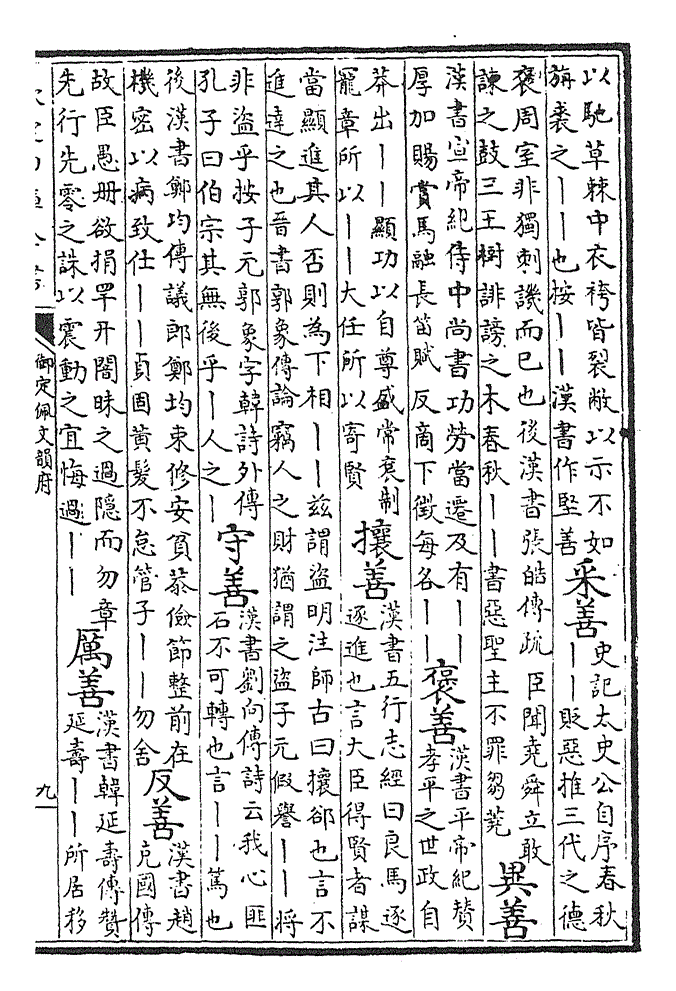 以馳草棘中衣袴皆裂敝以示不如
旃裘之丨丨也按丨丨漢書作堅善
采善
史記太史公自序春秋
丨丨貶惡推三代之德
襃周室非獨刺譏而已也後漢書張皓傳疏 臣聞堯舜立敢
諫之鼓三王樹誹謗之木春秋丨丨書惡聖主不罪芻蕘
異善
漢書宣帝紀侍中尚書功勞當遷及有丨丨
厚加賜賞馬融長笛賦 反啇下徵每各丨丨
襃善
漢書平帝紀贊
孝平之世政自
莽出丨丨顯功以自尊盛常衮制
寵章所以丨丨大任所以寄賢
攘善
漢書五行志經曰良馬逐
逐進也言大臣得賢者謀
當顯進其人否則為下相丨丨兹謂盜明注師古曰攘郤也言不
進達之也晉書郭象傳論竊人之財猶謂之盜子元假譽丨丨將
非盜乎按子元郭象字韓詩外傳
孔子曰伯宗其無後乎丨人之丨
守善
漢書劉向傳詩云我心匪
石不可轉也言丨丨篤也
後漢書鄭均傳議郎鄭均束修安貧恭儉節整前在
機密以病致仕丨丨貞固黃髮不怠管子丨丨丨勿舍
反善
漢書趙
充國傳
故臣愚册欲捐罕开闇昧之過隱而勿章
先行先零之誅以震動之宜悔過丨丨
厲善
漢書韓延壽傳贊
延壽丨丨所居移
御定佩文韻府
九